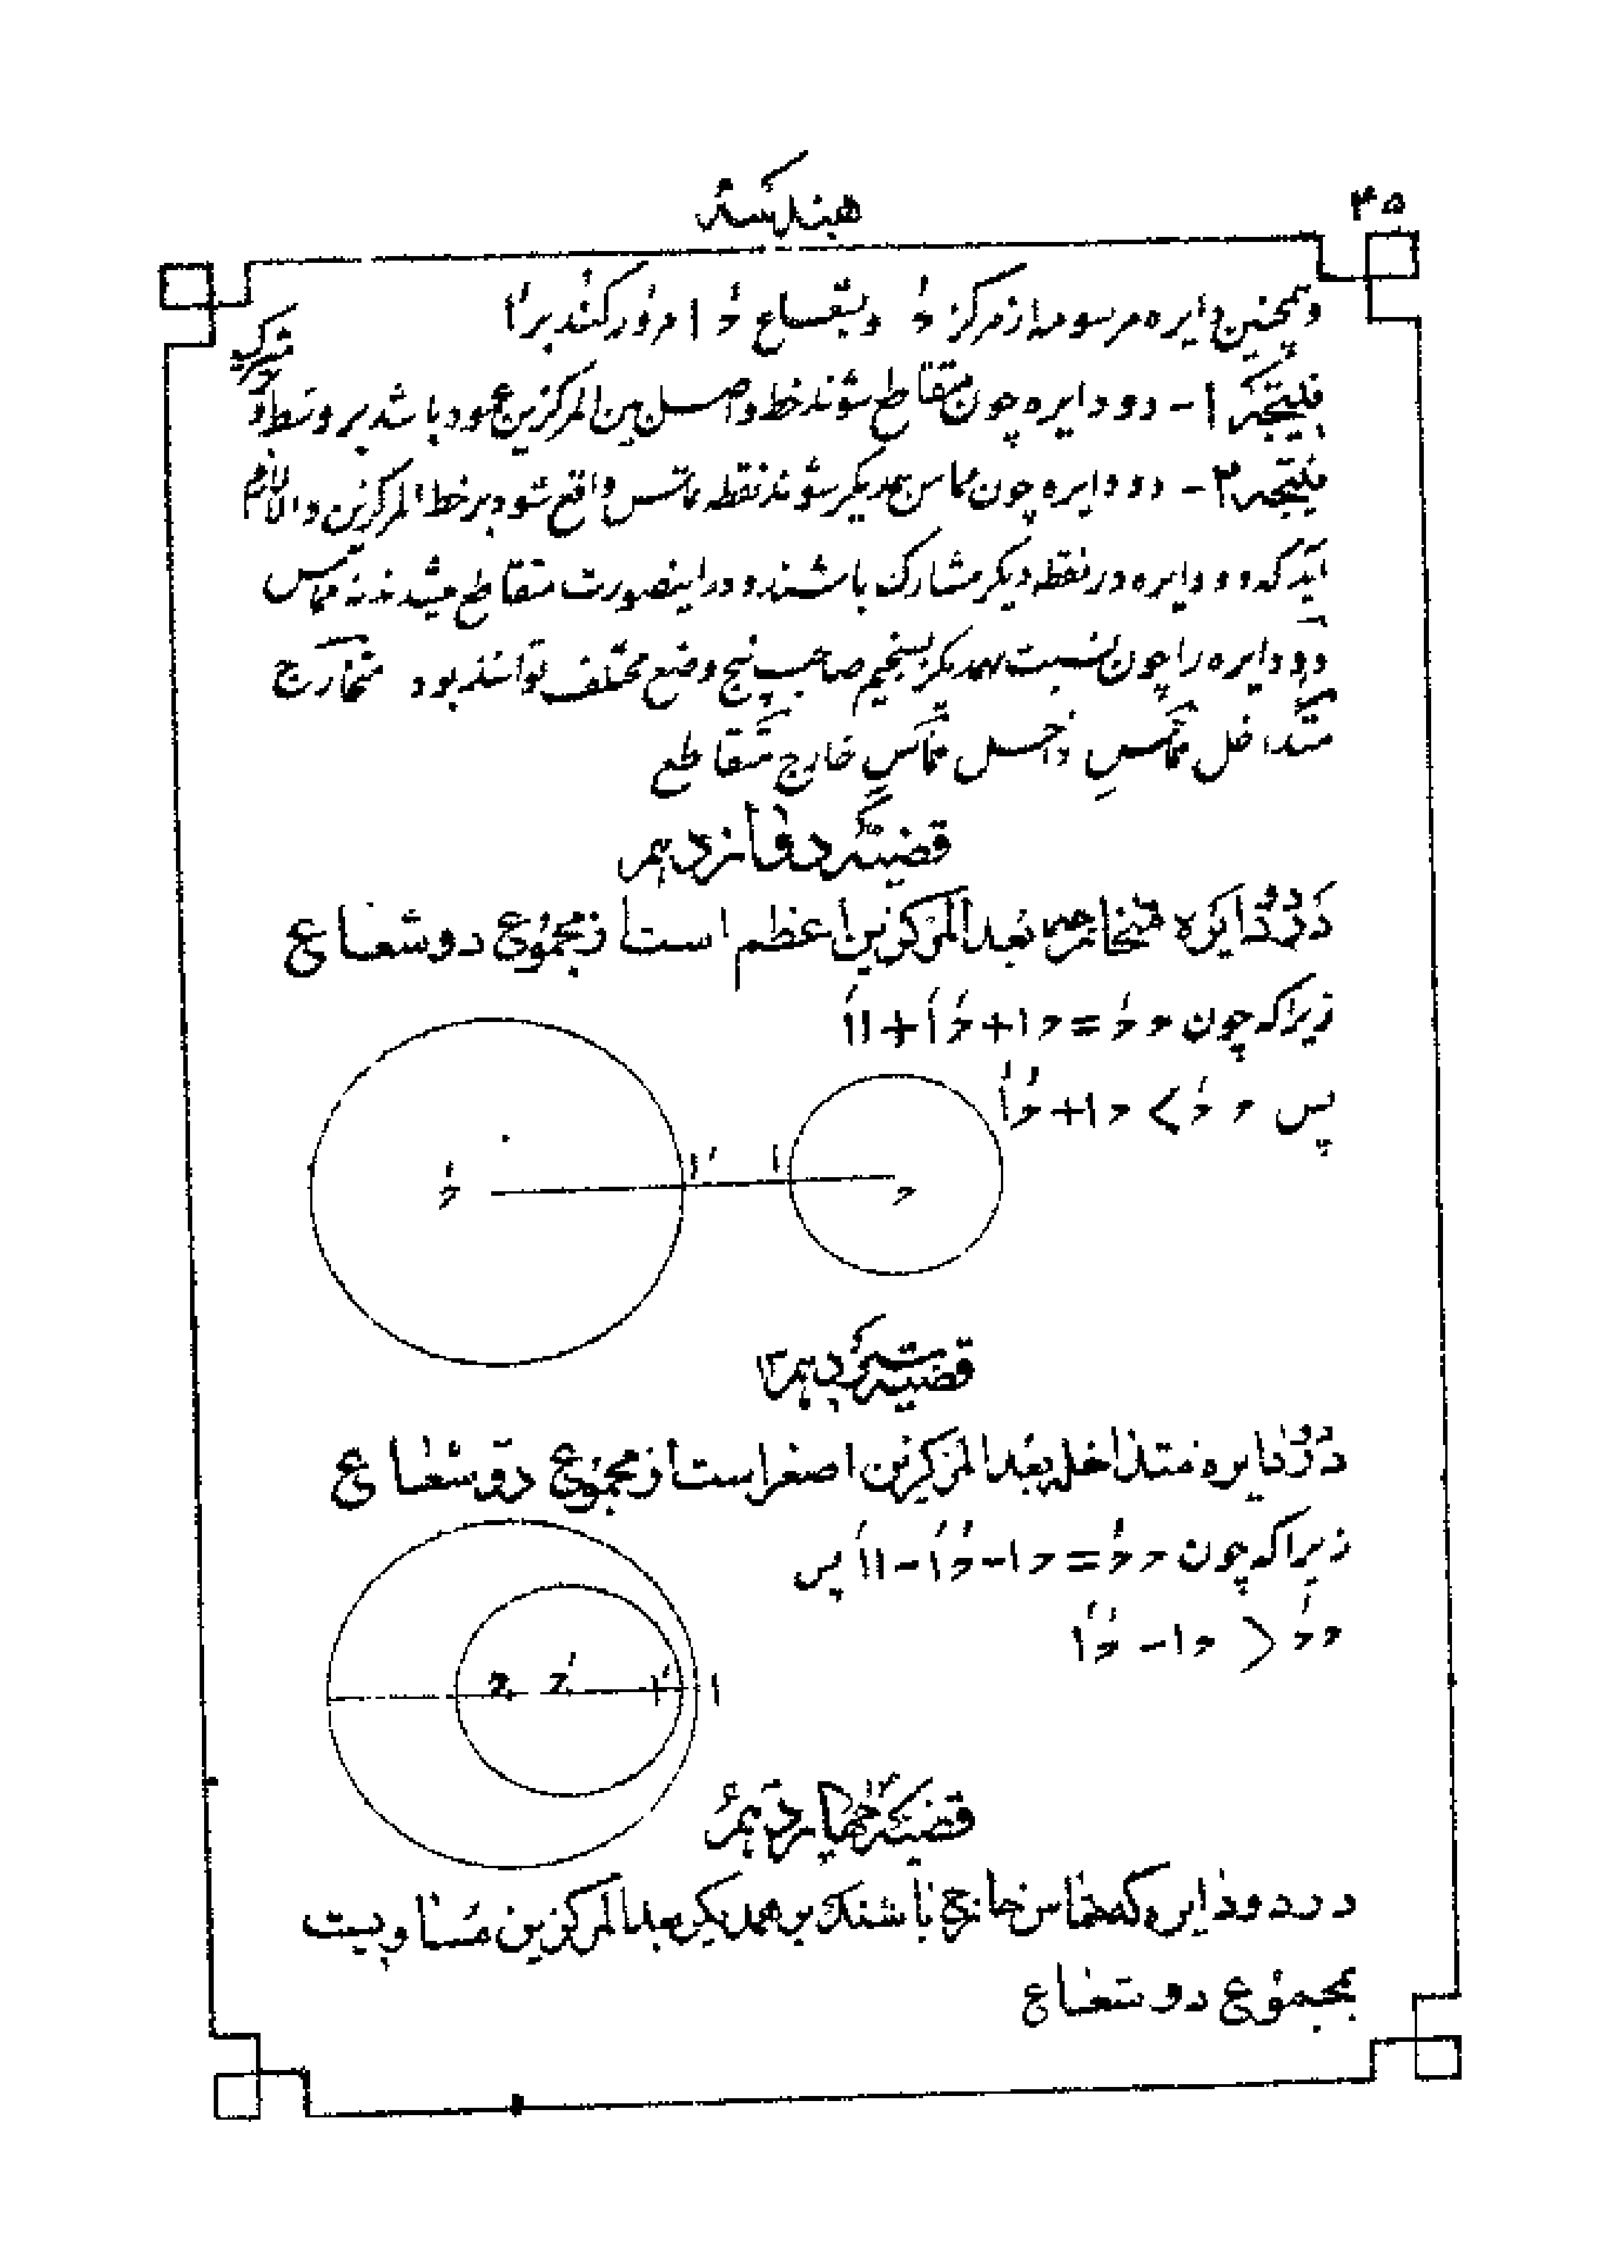 ۴۵
هندسه
و همچنین دایره مرسومه از مرکز و′ و بشعاع و′ ا مرور کند بر ا′
نتیجه ۱ - دو دایره چون متقاطع شوند خط واصل بین المرکزین عمود باشد بر وسط وتر مشترک
نتیجه ۲ - دو دایره چون مماس همدیگر شوند نقطه تماس واقع شود بر خط المرکزین والا لازم
آید که دو دایره در نقطه دیگر مشارک باشند و در اینصورت متقاطع میشدند نه مماس
دو دایره را چون نسبت بهمدیگر بسنجیم صاحب پنج وضع مختلف توانند بود متخارج
متداخل مماس داخل مماس خارج متقاطع
قضیه دوازدهم
در دو دایره متخارجه بعد المرکزین اعظم است از مجموع دو شعاع
زیرا که چون و و′ = و ا + و′ ا′ + ا ا′
پس و و′ > و ا + و′ ا′
و′ ا′ ا و
قضیه سیزدهم ۱۳
در دو دایره متداخله بعد المرکزین اصغر است از مجموع دو شعاع
زیرا که چون و و′ = و ا - و′ ا′ - ا ا′ پس
و و′ < و ا - و′ ا′
و و′ ا′ ا
قضیه چهاردهم ۱۴
در دو دایره که مماس خارج باشند بر همدیگر بعد المرکزین مساویست
بمجموع دو شعاع